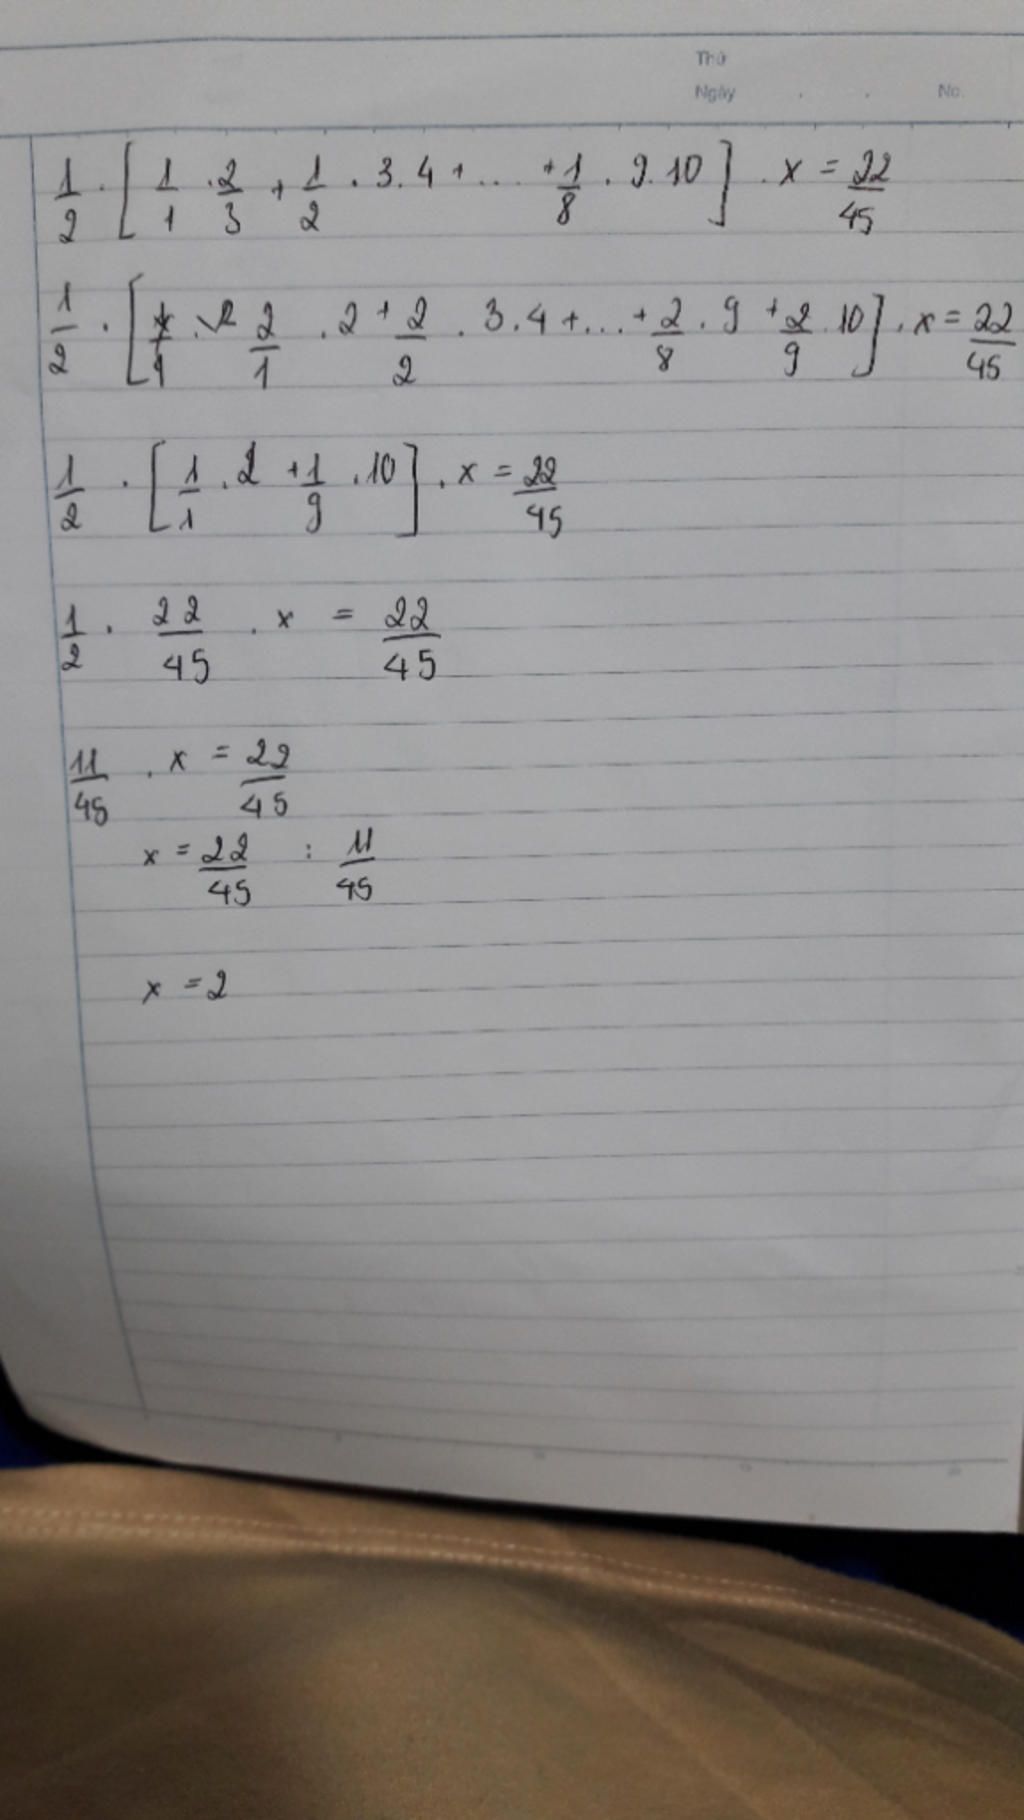 Thứ
Ngày . . No.
1/2 . [ 1/1 . 2/3 + 1/2 . 3.4 + ... + 1/8 . 9.10 ] . x = 22/45
1/2 . [ 2/1 . 2 + 2/2 . 3.4 + ... + 2/8 . 9 + 2/9 . 10 ] . x = 22/45
1/2 . [ 1/1 . 2 + 1/9 . 10 ] . x = 22/45
1/2 . 22/45 . x = 22/45
11/45 . x = 22/45
x = 22/45 : 11/45
x = 2